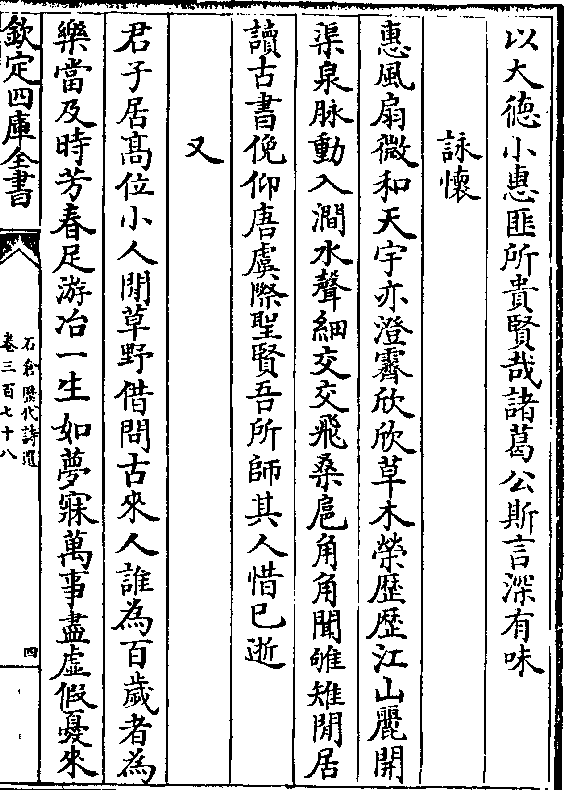 以大德小惠匪所貴賢哉諸葛公斯言深有味
詠懷
惠風扇微和天宇亦澄霽欣欣草木榮歴歴江山麗開
渠泉脉動入澗水聲細交交飛桑扈角角聞雊雉閒居
讀古書俛仰唐虞際聖賢吾所師其人惜已逝
又
君子居髙位小人閒草野借問古來人誰為百歲者為
樂當及時芳春足游冶一生如夢寐萬事盡虛假憂來
欽定四庫全書
石倉歷代詩選
卷三百七十八
四